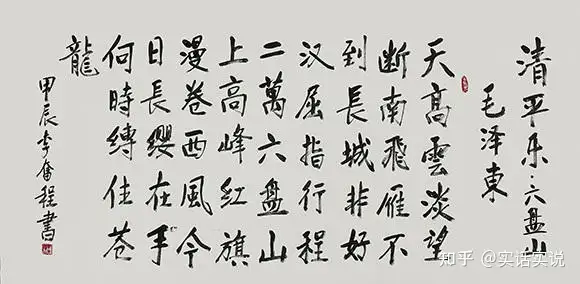 清平乐·六盘山
毛泽东
天高雲淡望
断南飛雁不
到長城非好
汉屈指行程
二萬六盘山
上高峰红旗
漫卷西風今
日長缨在手
何時缚住苍
龍
甲辰李奮程書
知乎 @实话实说